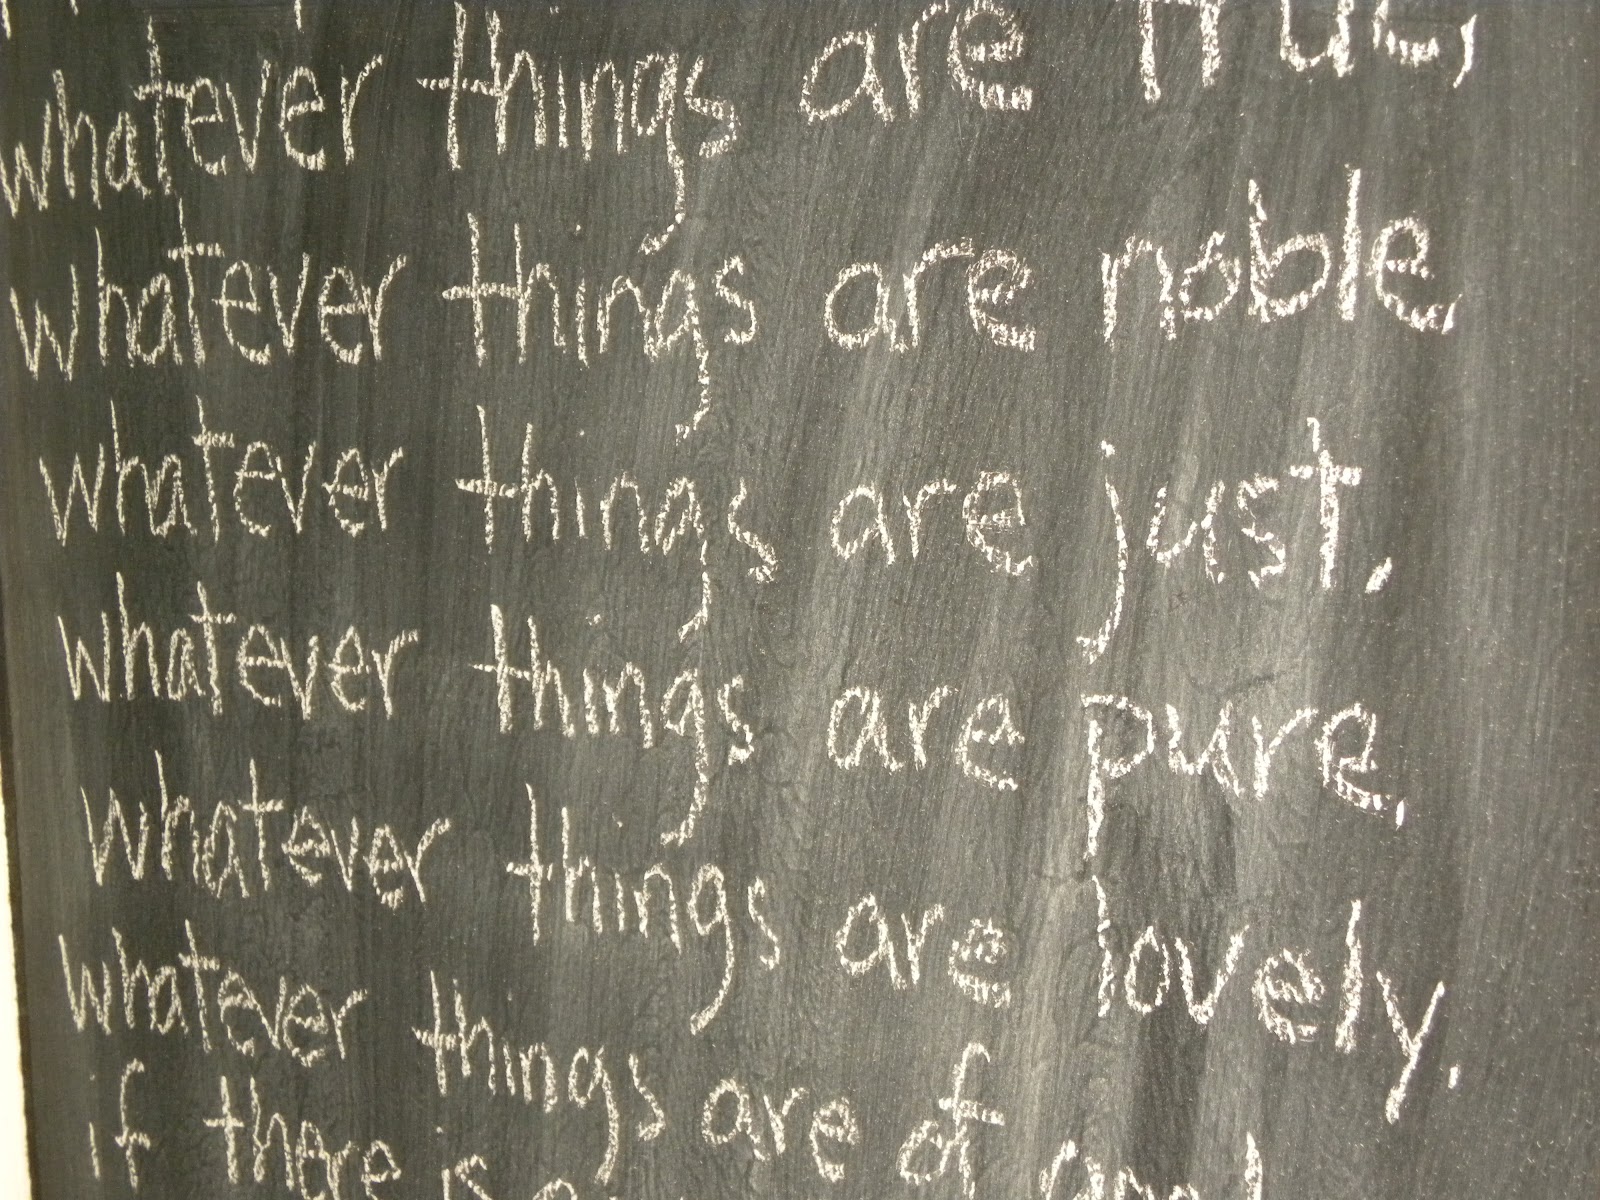 whatever things are true,
whatever things are noble,
whatever things are just,
whatever things are pure,
whatever things are lovely,
whatever things are of good
if there is